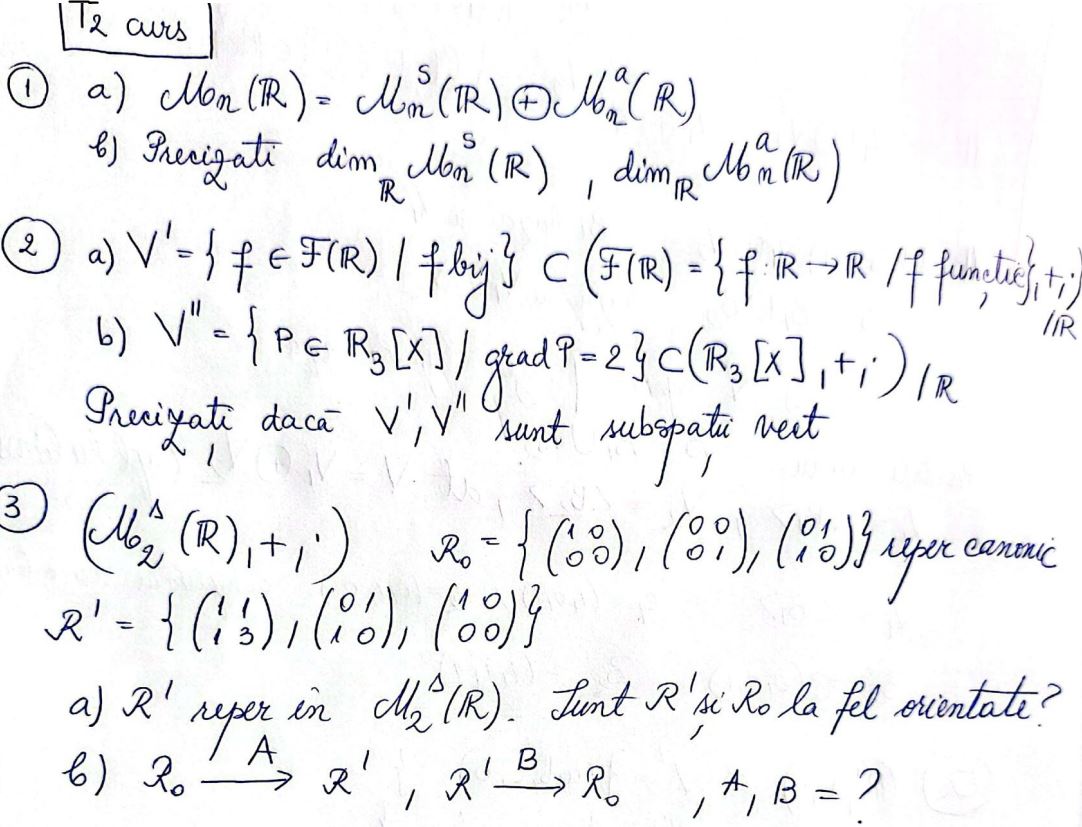 T2 curs
① a) Mn(ℝ) = Mn^s(ℝ) ⊕ Mn^a(ℝ)
b) Precizați dim_ℝ Mn^s(ℝ), dim_ℝ Mn^a(ℝ)
② a) V' = { f ∈ F(ℝ) / f bij } ⊂ (F(ℝ) = { f: ℝ → ℝ / f funcție}, +, ·) /ℝ
b) V'' = { P ∈ ℝ3[X] / grad P = 2 } ⊂ (ℝ3[X], +, ·) /ℝ
Precizați dacă V', V'' sunt subspații vect
3 (M2^s(ℝ), +, ·) R0 = { (1 0 / 0 0), (0 0 / 0 1), (0 1 / 1 0) } reper canonic
R' = { (1 1 / 1 3), (0 1 / 1 0), (1 0 / 0 0) }
a) R' reper în M2^s(ℝ). Sunt R' și R0 la fel orientate?
b) R0 —A→ R', R' —B→ R0, A, B = ?